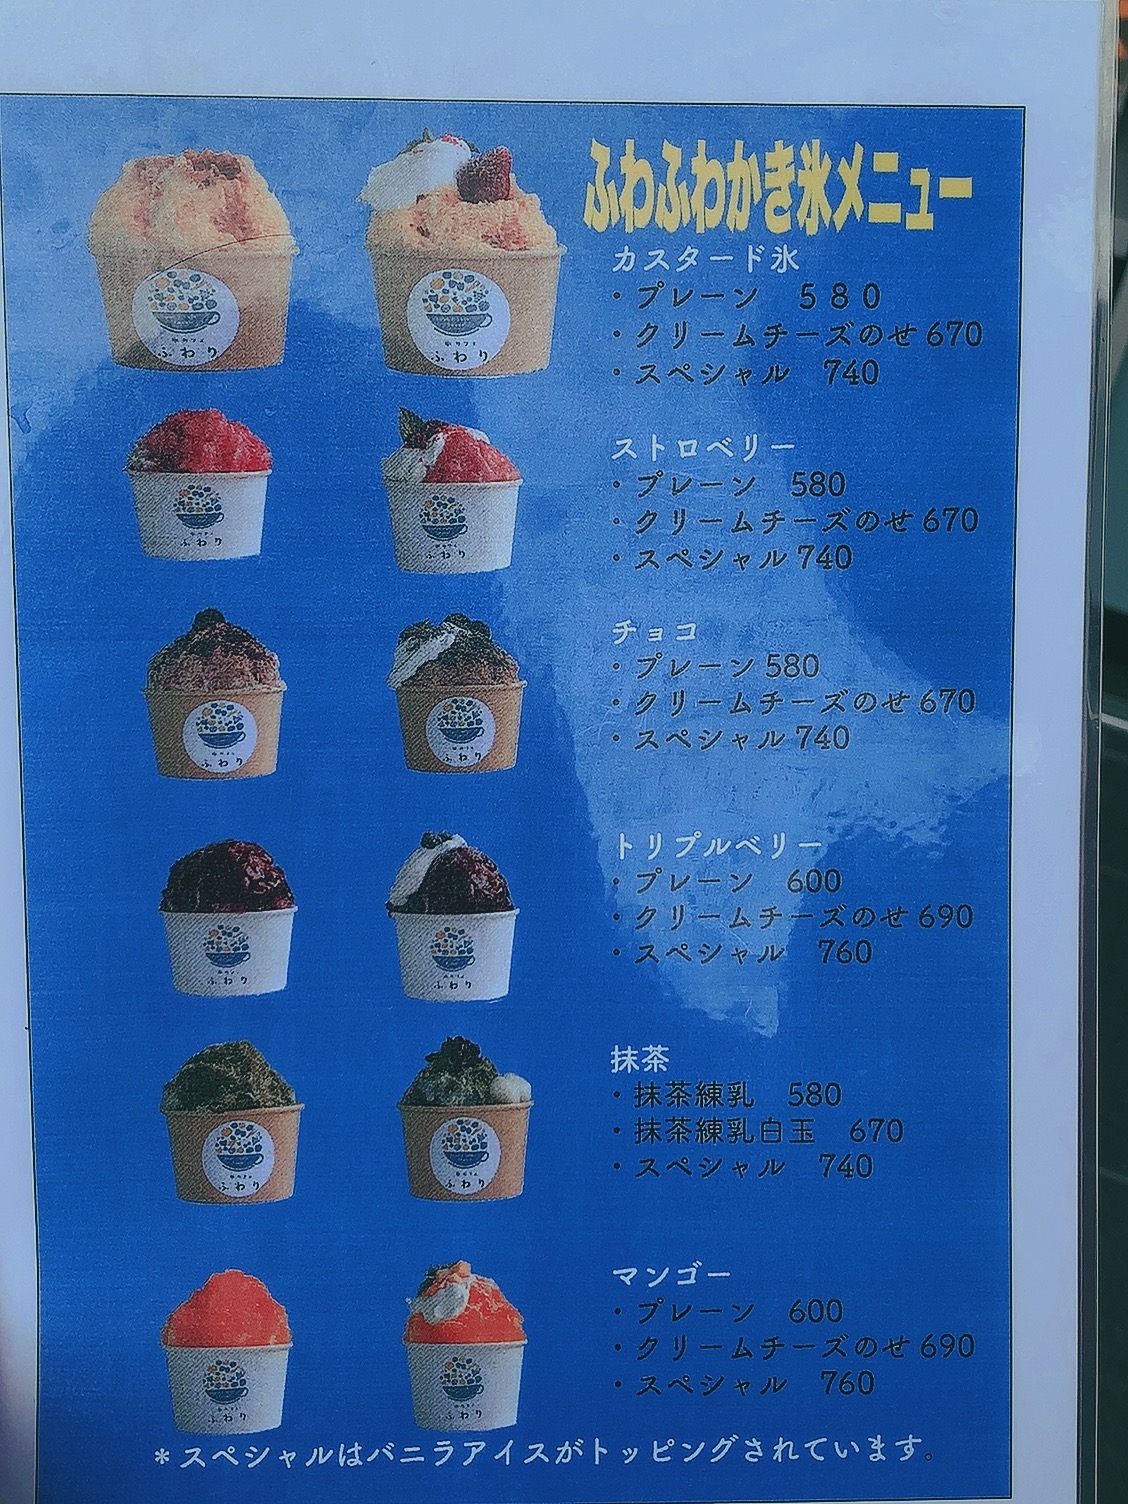 ふわふわかき氷メニュー
カスタード氷
・プレーン　５８０
・クリームチーズのせ 670
・スペシャル　740
ストロベリー
・プレーン　580
・クリームチーズのせ 670
・スペシャル 740
チョコ
・プレーン 580
・クリームチーズのせ 670
・スペシャル 740
トリプルベリー
・プレーン　600
・クリームチーズのせ 690
・スペシャル　760
抹茶
・抹茶練乳　580
・抹茶練乳白玉　670
・スペシャル　740
マンゴー
・プレーン　600
・クリームチーズのせ 690
・スペシャル　760
＊スペシャルはバニラアイスがトッピングされています。
ふわり
ふわり
ふわり
ふわり
ふわり
ふわり
ふわり
ふわり
ふわり
ふわり
ふわり
ふわり